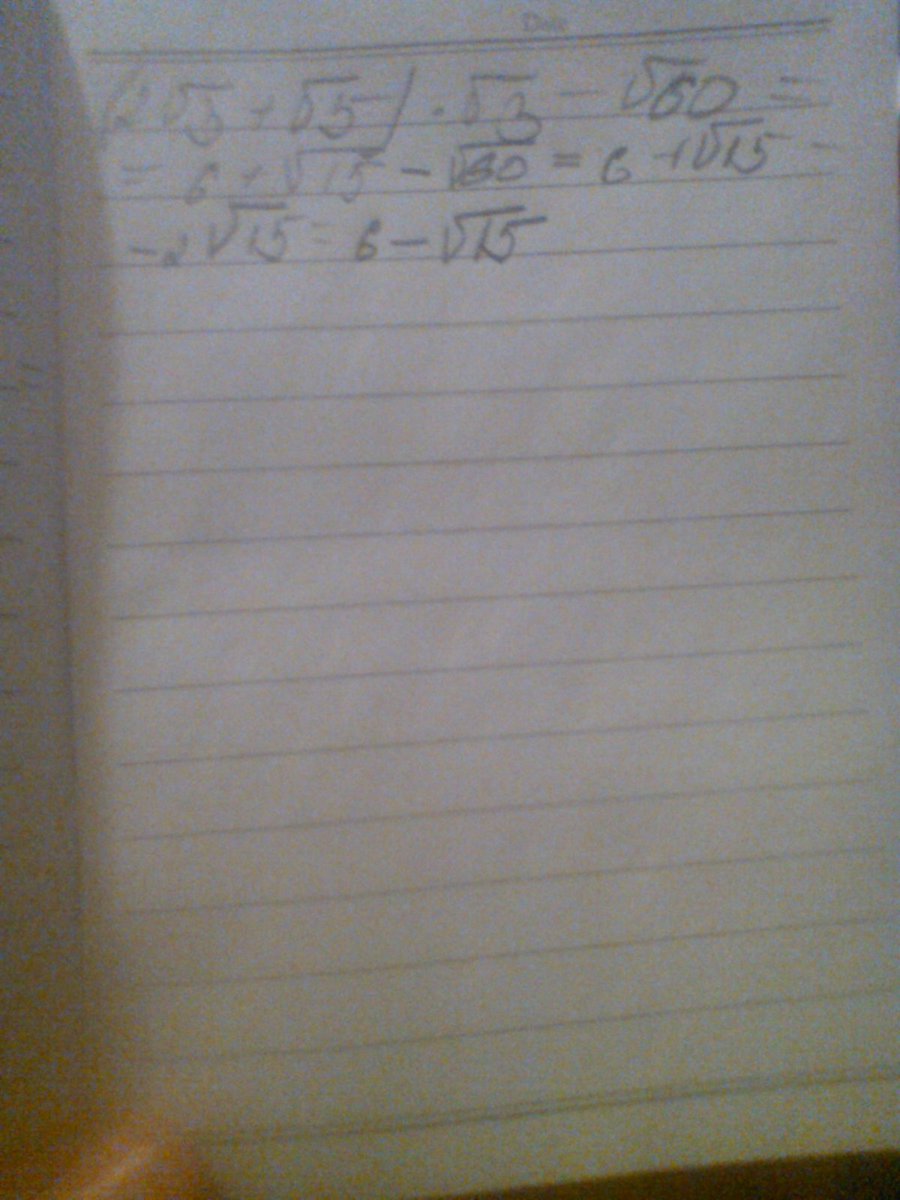 Date
(2√3 + √5) · √3 − √60 =
= 6 + √15 − √60 = 6 + √15 −
− 2√15 = 6 − √15